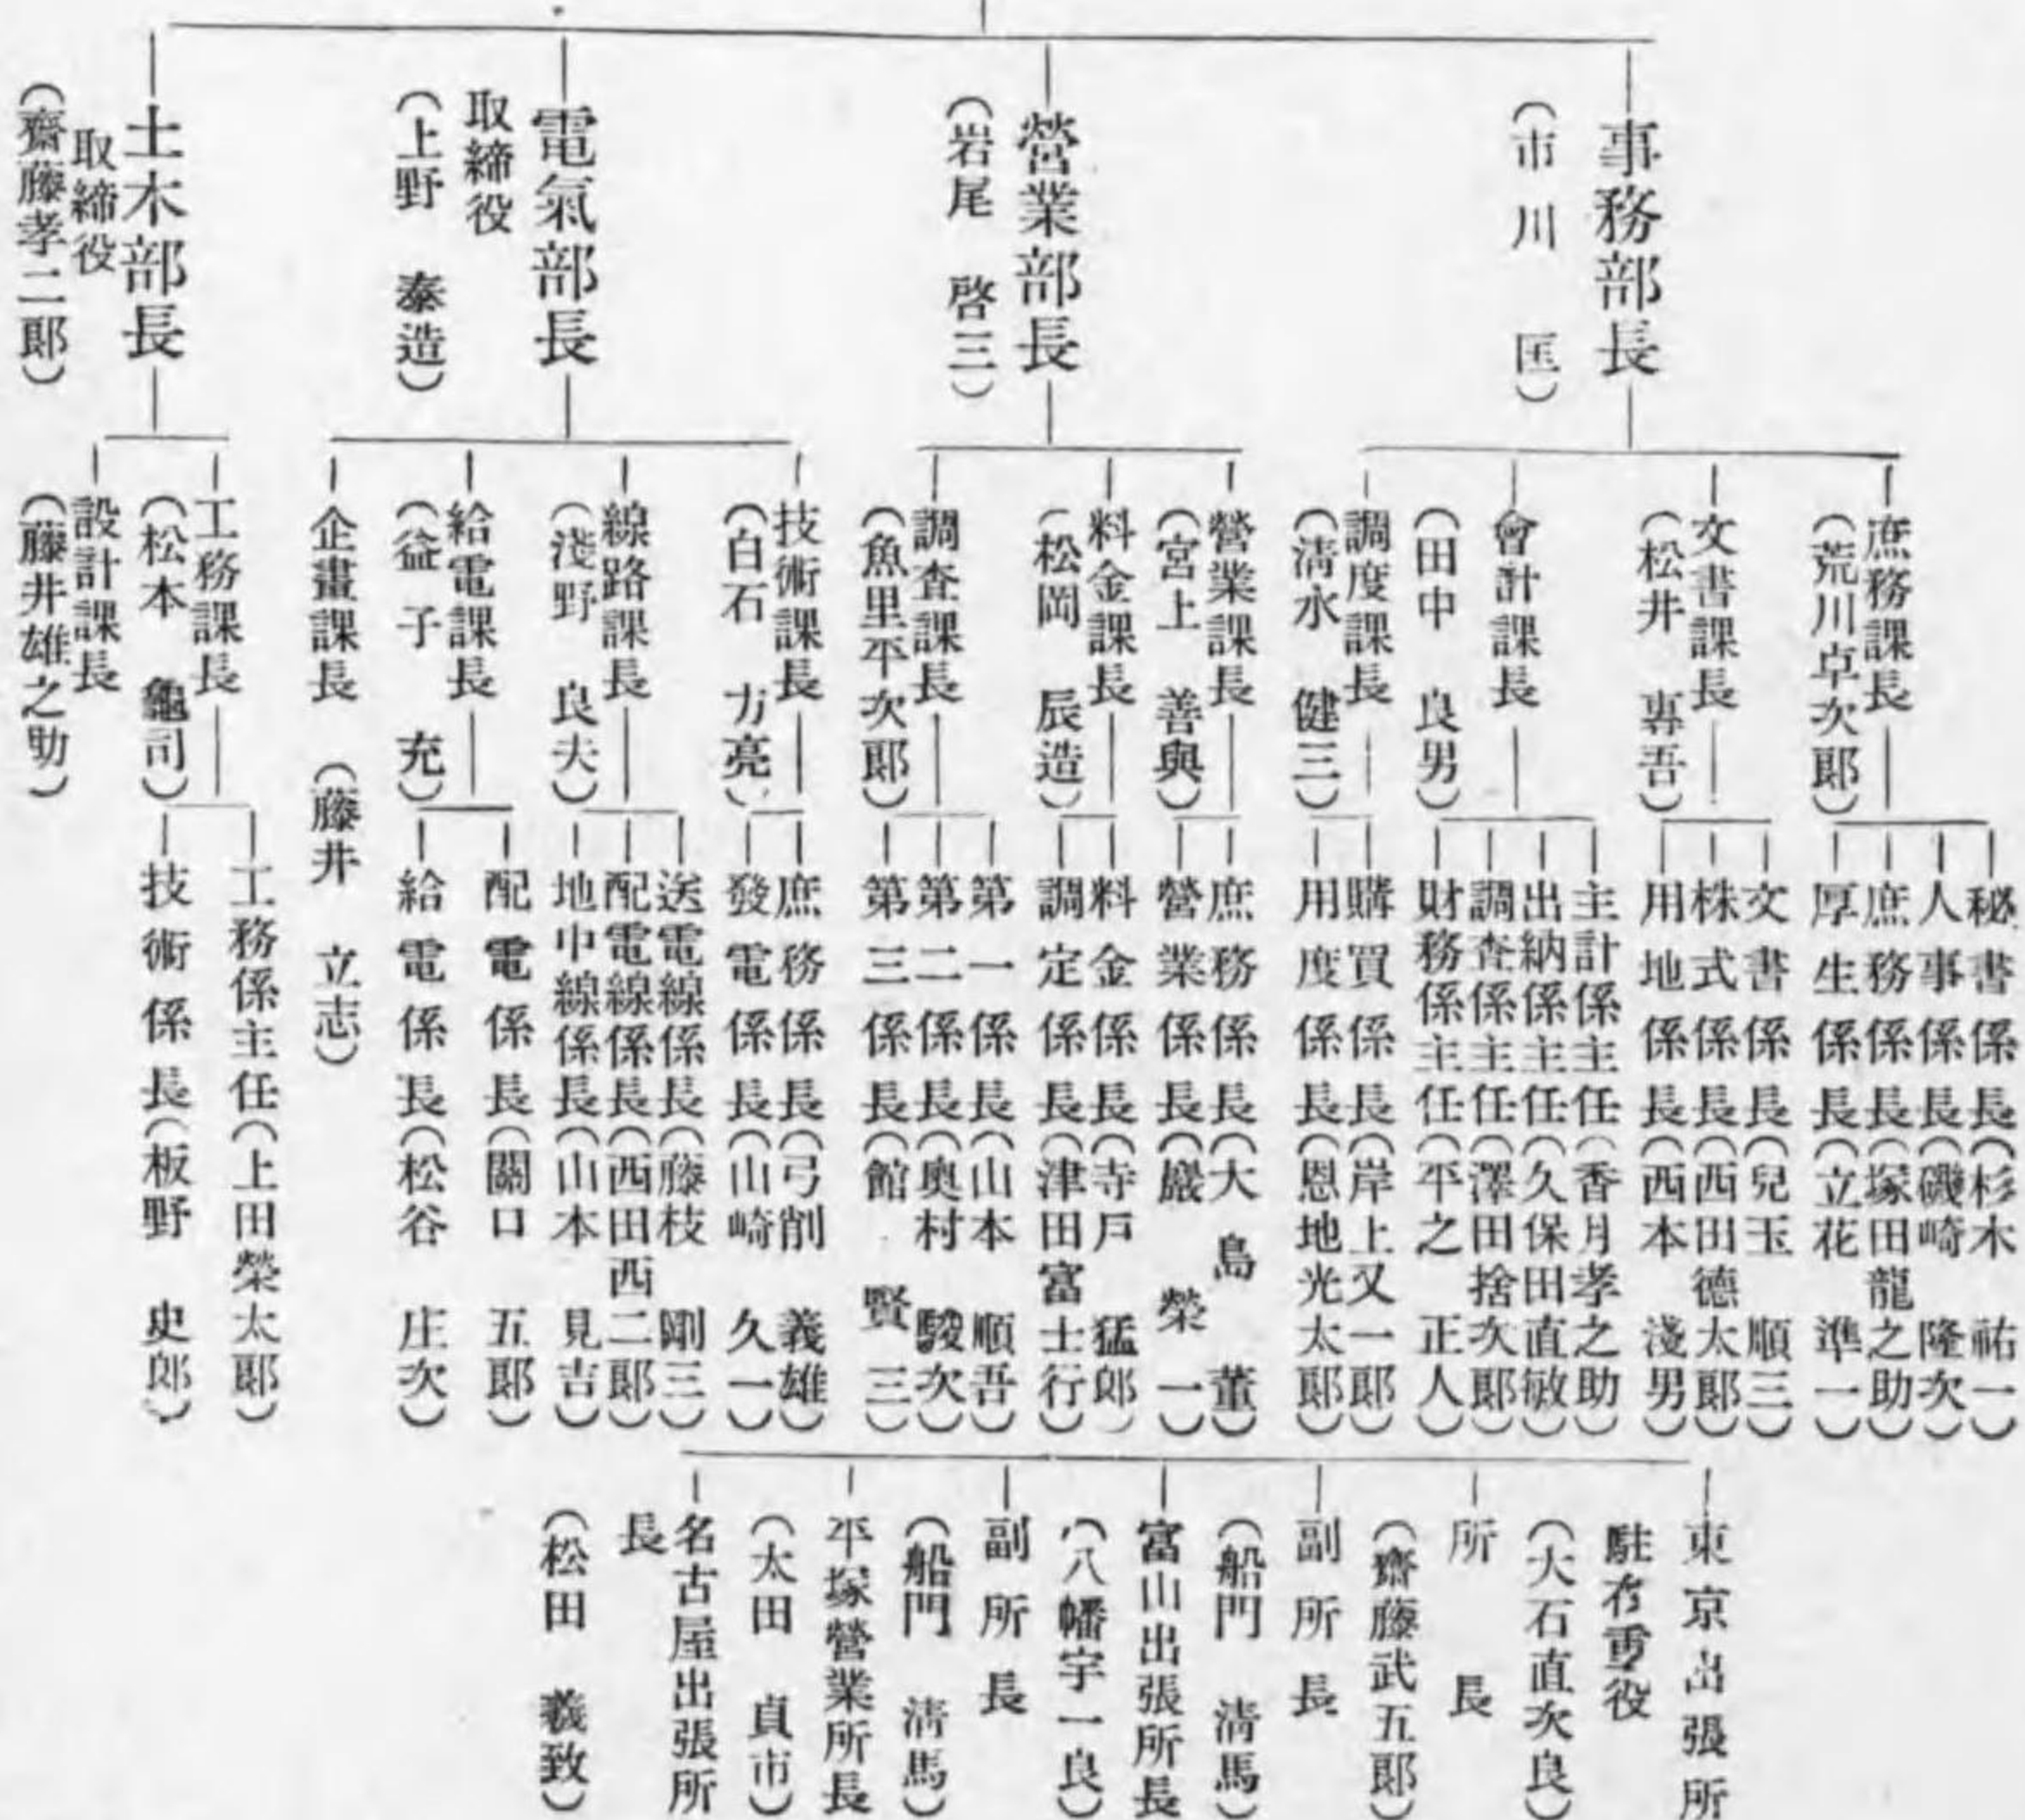 事務部長
(市川 匡)
庶務課長
(荒川卓次郎)
秘書係長(杉木 祐一)
人事係長(磯崎 隆次)
庶務係長(塚田龍之助)
厚生係長(立花 準一)
文書課長
(松井 專吾)
文書係長(兒玉 順三)
株式係長(西田德太郎)
用地係長(西本 淺男)
會計課長
(田中 良男)
主計係主任(香月孝之助)
出納係主任(久保田直敏)
調査係主任(澤田捨次郎)
財務係主任(平之 正人)
調度課長
(淸水 健三)
購買係長(岸上又一郎)
用度係長(恩地光太郎)
營業部長
(岩尾 啓三)
營業課長
(宮上 善與)
庶務係長(大島 董)
營業係長(巖 榮一)
料金課長
(松岡 辰造)
料金係長(寺戶 猛郎)
調定係長(津田富士行)
調査課長
(魚里平次郎)
第一係長(山本 順吾)
第二係長(奥村 駿次)
第三係長(館 賢三)
電氣部長
取締役
(上野 泰造)
技術課長
(白石 方亮)
庶務係長(弓削 義雄)
發電係長(山崎 久一)
線路課長
(淺野 良夫)
送電線係長(藤枝 剛三)
配電線係長(西田西二郎)
地中線係長(山本 見吉)
給電課長
(益子 充)
配電係長(關口 五郎)
給電係長(松谷 庄次)
企畫課長 (藤井 立志)
土木部長
取締役
(齋藤孝二郎)
工務課長
(松本 龜司)
工務係主任(上田榮太郎)
技術係長(板野 史郎)
設計課長
(藤井雄之助)
東京出張所
駐在重役
(大石直次良)
所長
(齋藤武五郎)
副所長
(船門 淸馬)
富山出張所長
(八幡宇一良)
副所長
(船門 淸馬)
平塚營業所長
(太田 貞市)
名古屋出張所
長
(松田 義致)